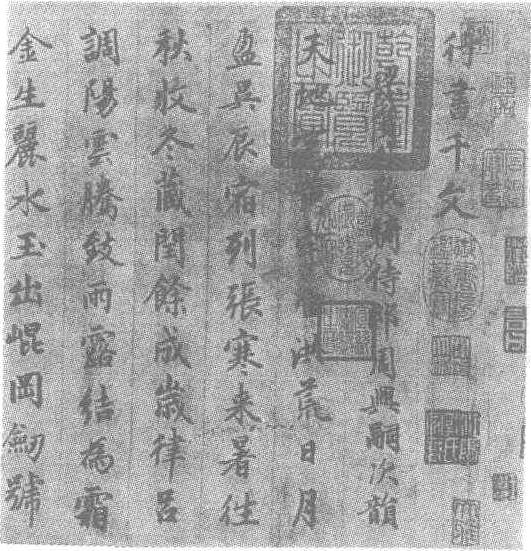 書千文
散騎侍郎周興嗣次韻
天地玄黃宇宙洪荒日月
盈昃辰宿列張寒来暑往
秋收冬藏閏餘成歲律呂
調陽雲騰致雨露結為霜
金生麗水玉出崐岡劒號